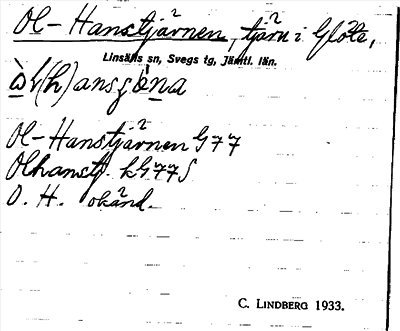 Ol-Hanstjärnen, tjärn i Glöte,
Linsälls sn, Svegs tg, Jämtl. län.
Ol-Hanstjärnen G77
Olhanstj. kG77S
O. H. okänd.
C. LINDBERG 1933.